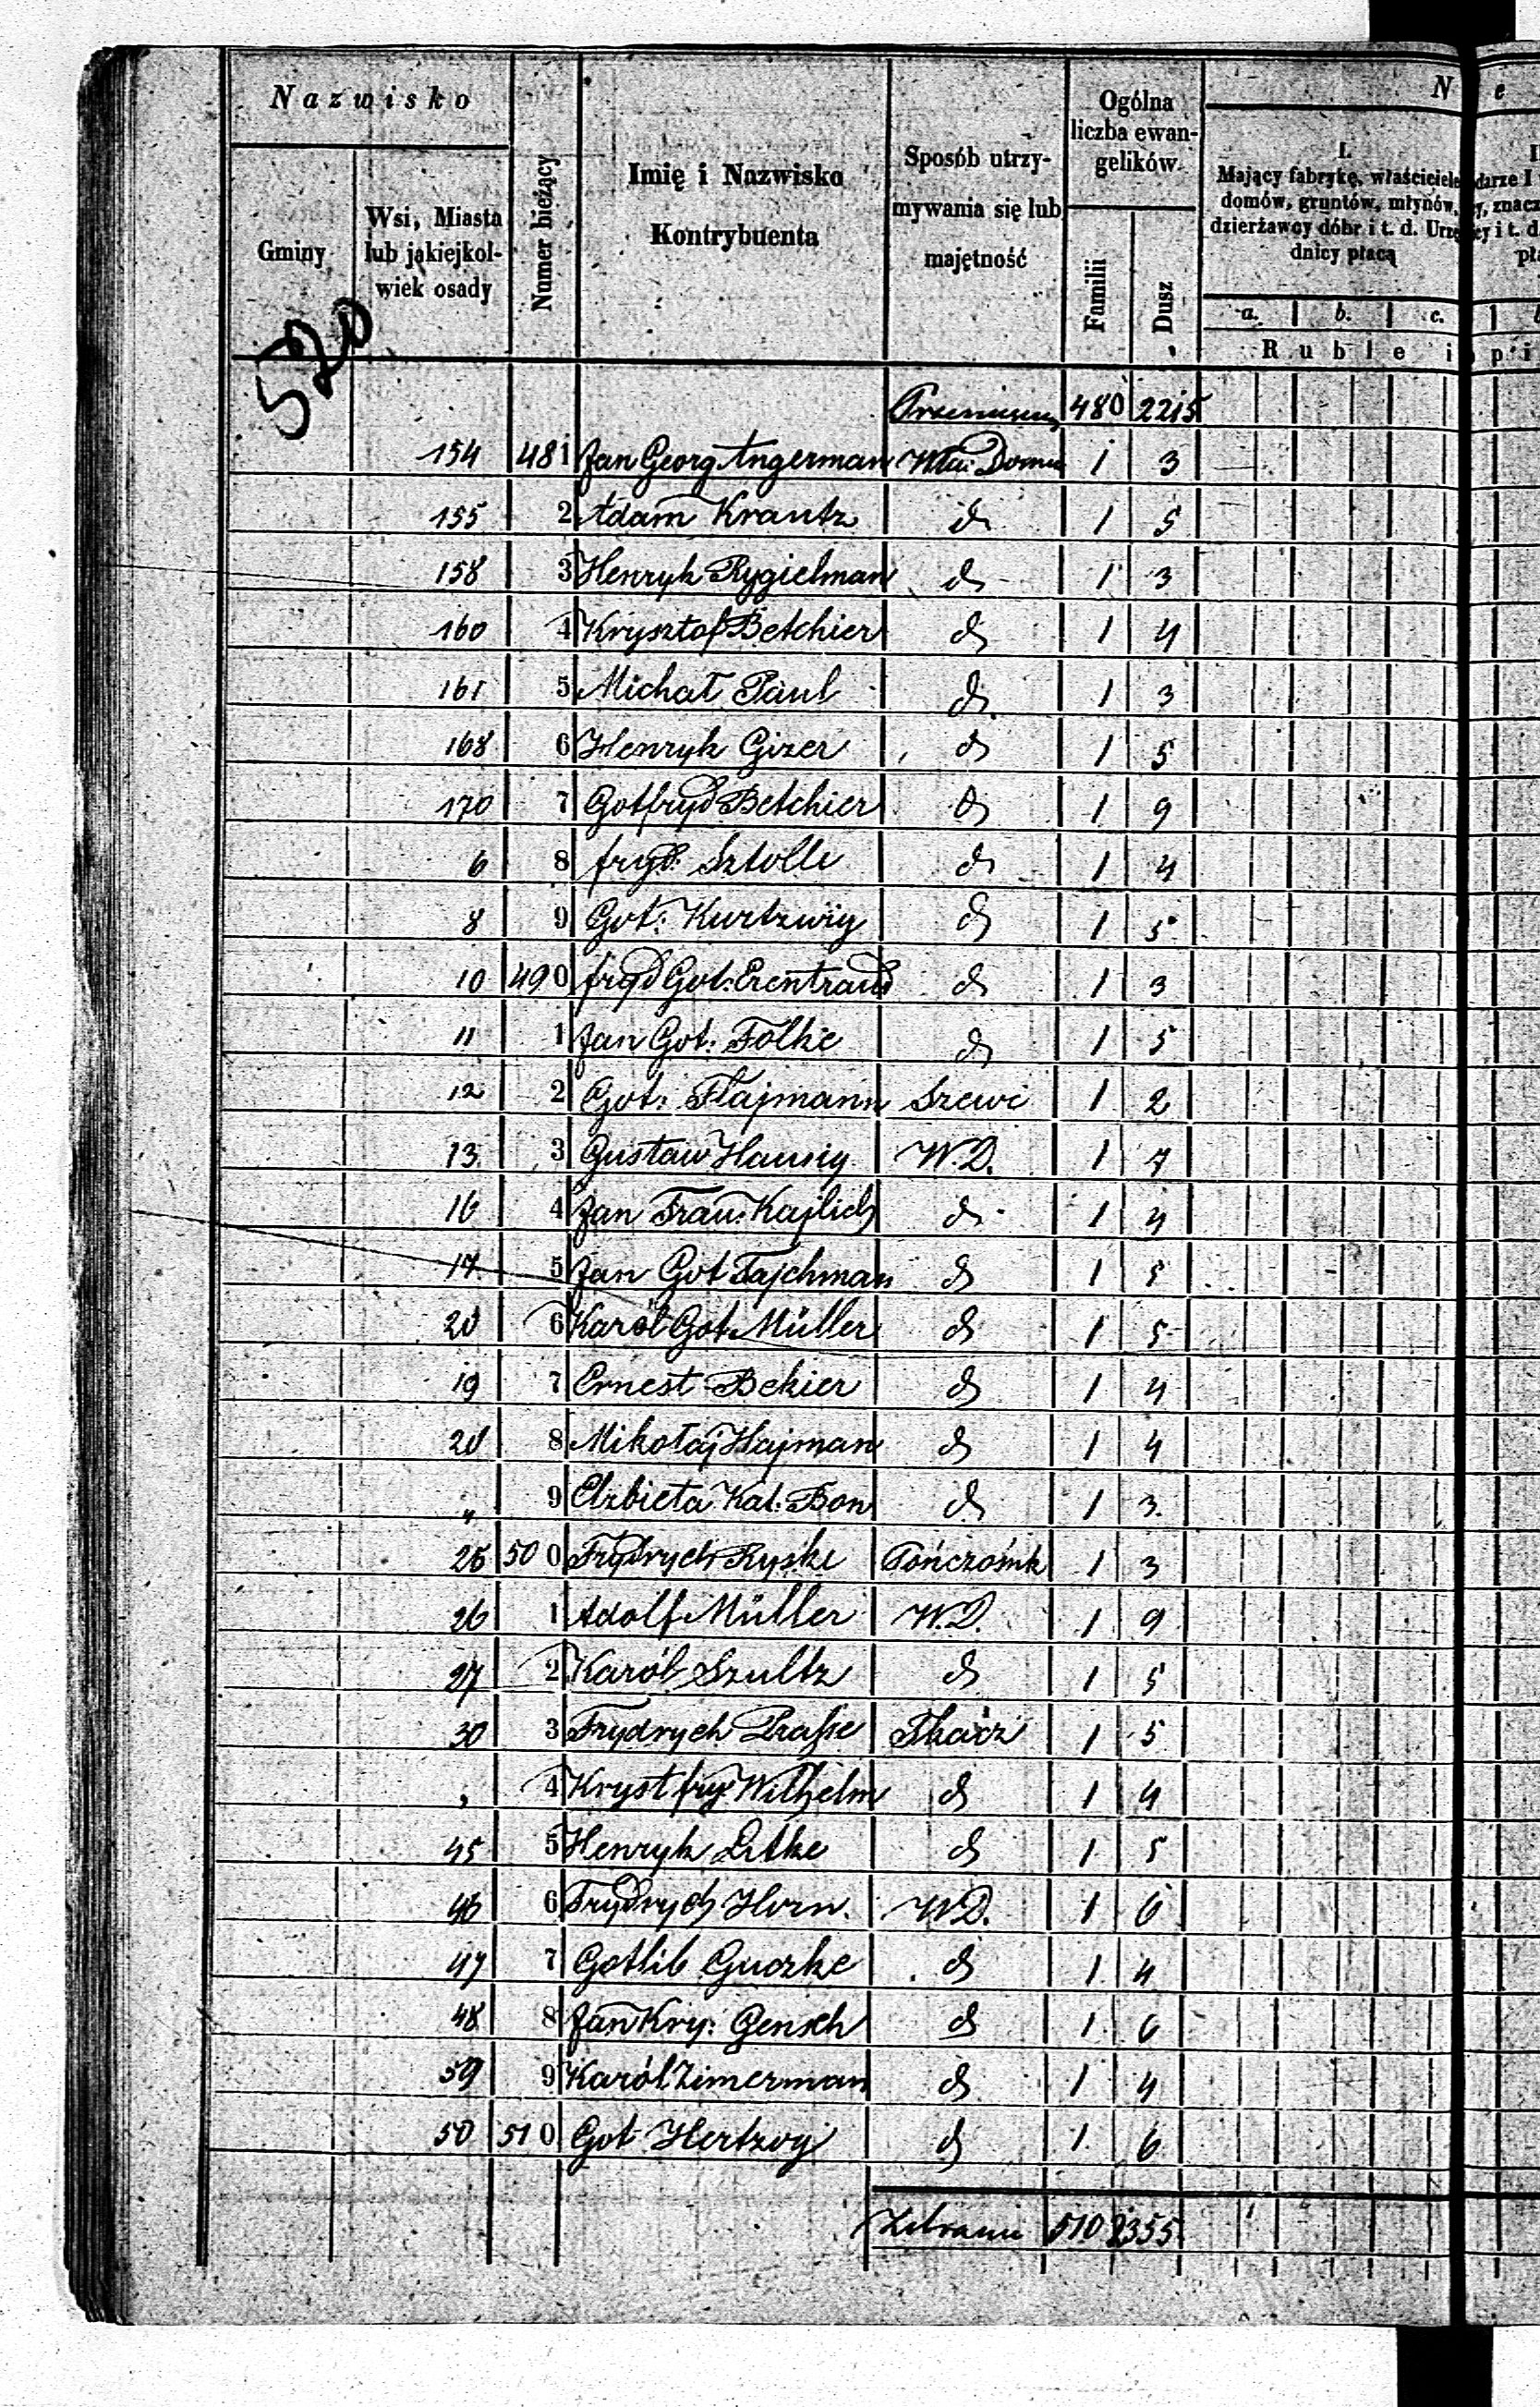 Nazwisko
Gminy
Wsi, Miasta lub jakiejkolwiek osady
Numer bieżący
Imię i Nazwisko Kontrybuenta
Sposób utrzymywania się lub majętność
Ogólna liczba ewangelików
Familii
Dusz
N e
I.
Mający fabrykę, właściciele domów, gruntów, młynów, dzierżawcy dóbr i t. d. Urzędnicy płacą
a. b. c.
Ruble i
520
480 2215
154 481 Jan Georg Angerman Wła: Domu 1 3
155 2 Adam Krantz d 1 5
158 3 Henryk Rygielman d 1 3
160 4 Krysztof Betchier d 1 4
161 5 Michał Paul d 1 3
168 6 Henryk Gizer d 1 5
170 7 Gotfryd Betchier d 1 9
6 8 fryd: Sztolle d 1 4
8 9 Got: Kurtzwig d 1 5
10 490 fryd Got: Erentraud d 1 3
11 1 Jan Got: Folke d 1 5
12 2 Got: Flajmann Szewc 1 2
13 3 Gustaw Hausig W.D. 1 7
16 4 Jan Frau: Kajlich d 1 4
17 5 Jan Got Tajchman d 1 5
20 6 Karól Got. Müller d 1 5
19 7 Ernest Bekier d 1 4
20 8 Mikołaj Hajman d 1 4
" 9 Elzbieta Kat: Bon d 1 3
25 500 Frydrych Ryske Pończośnk 1 3
26 1 Adolf Müller W.D. 1 9
27 2 Karól Szultz d 1 5
30 3 Frydrych Prasse Tkacz 1 5
" 4 Kryst fry: Wilhelm d 1 4
45 5 Henryk Litke d 1 5
46 6 Frydrych Horn. W.D. 1 6
47 7 Gotlib Guczke d 1 4
48 8 Jan Kry: Gensch d 1 6
59 9 Karól Zimerman d 1 4
50 510 Got Hertzog d 1 6
510 2355